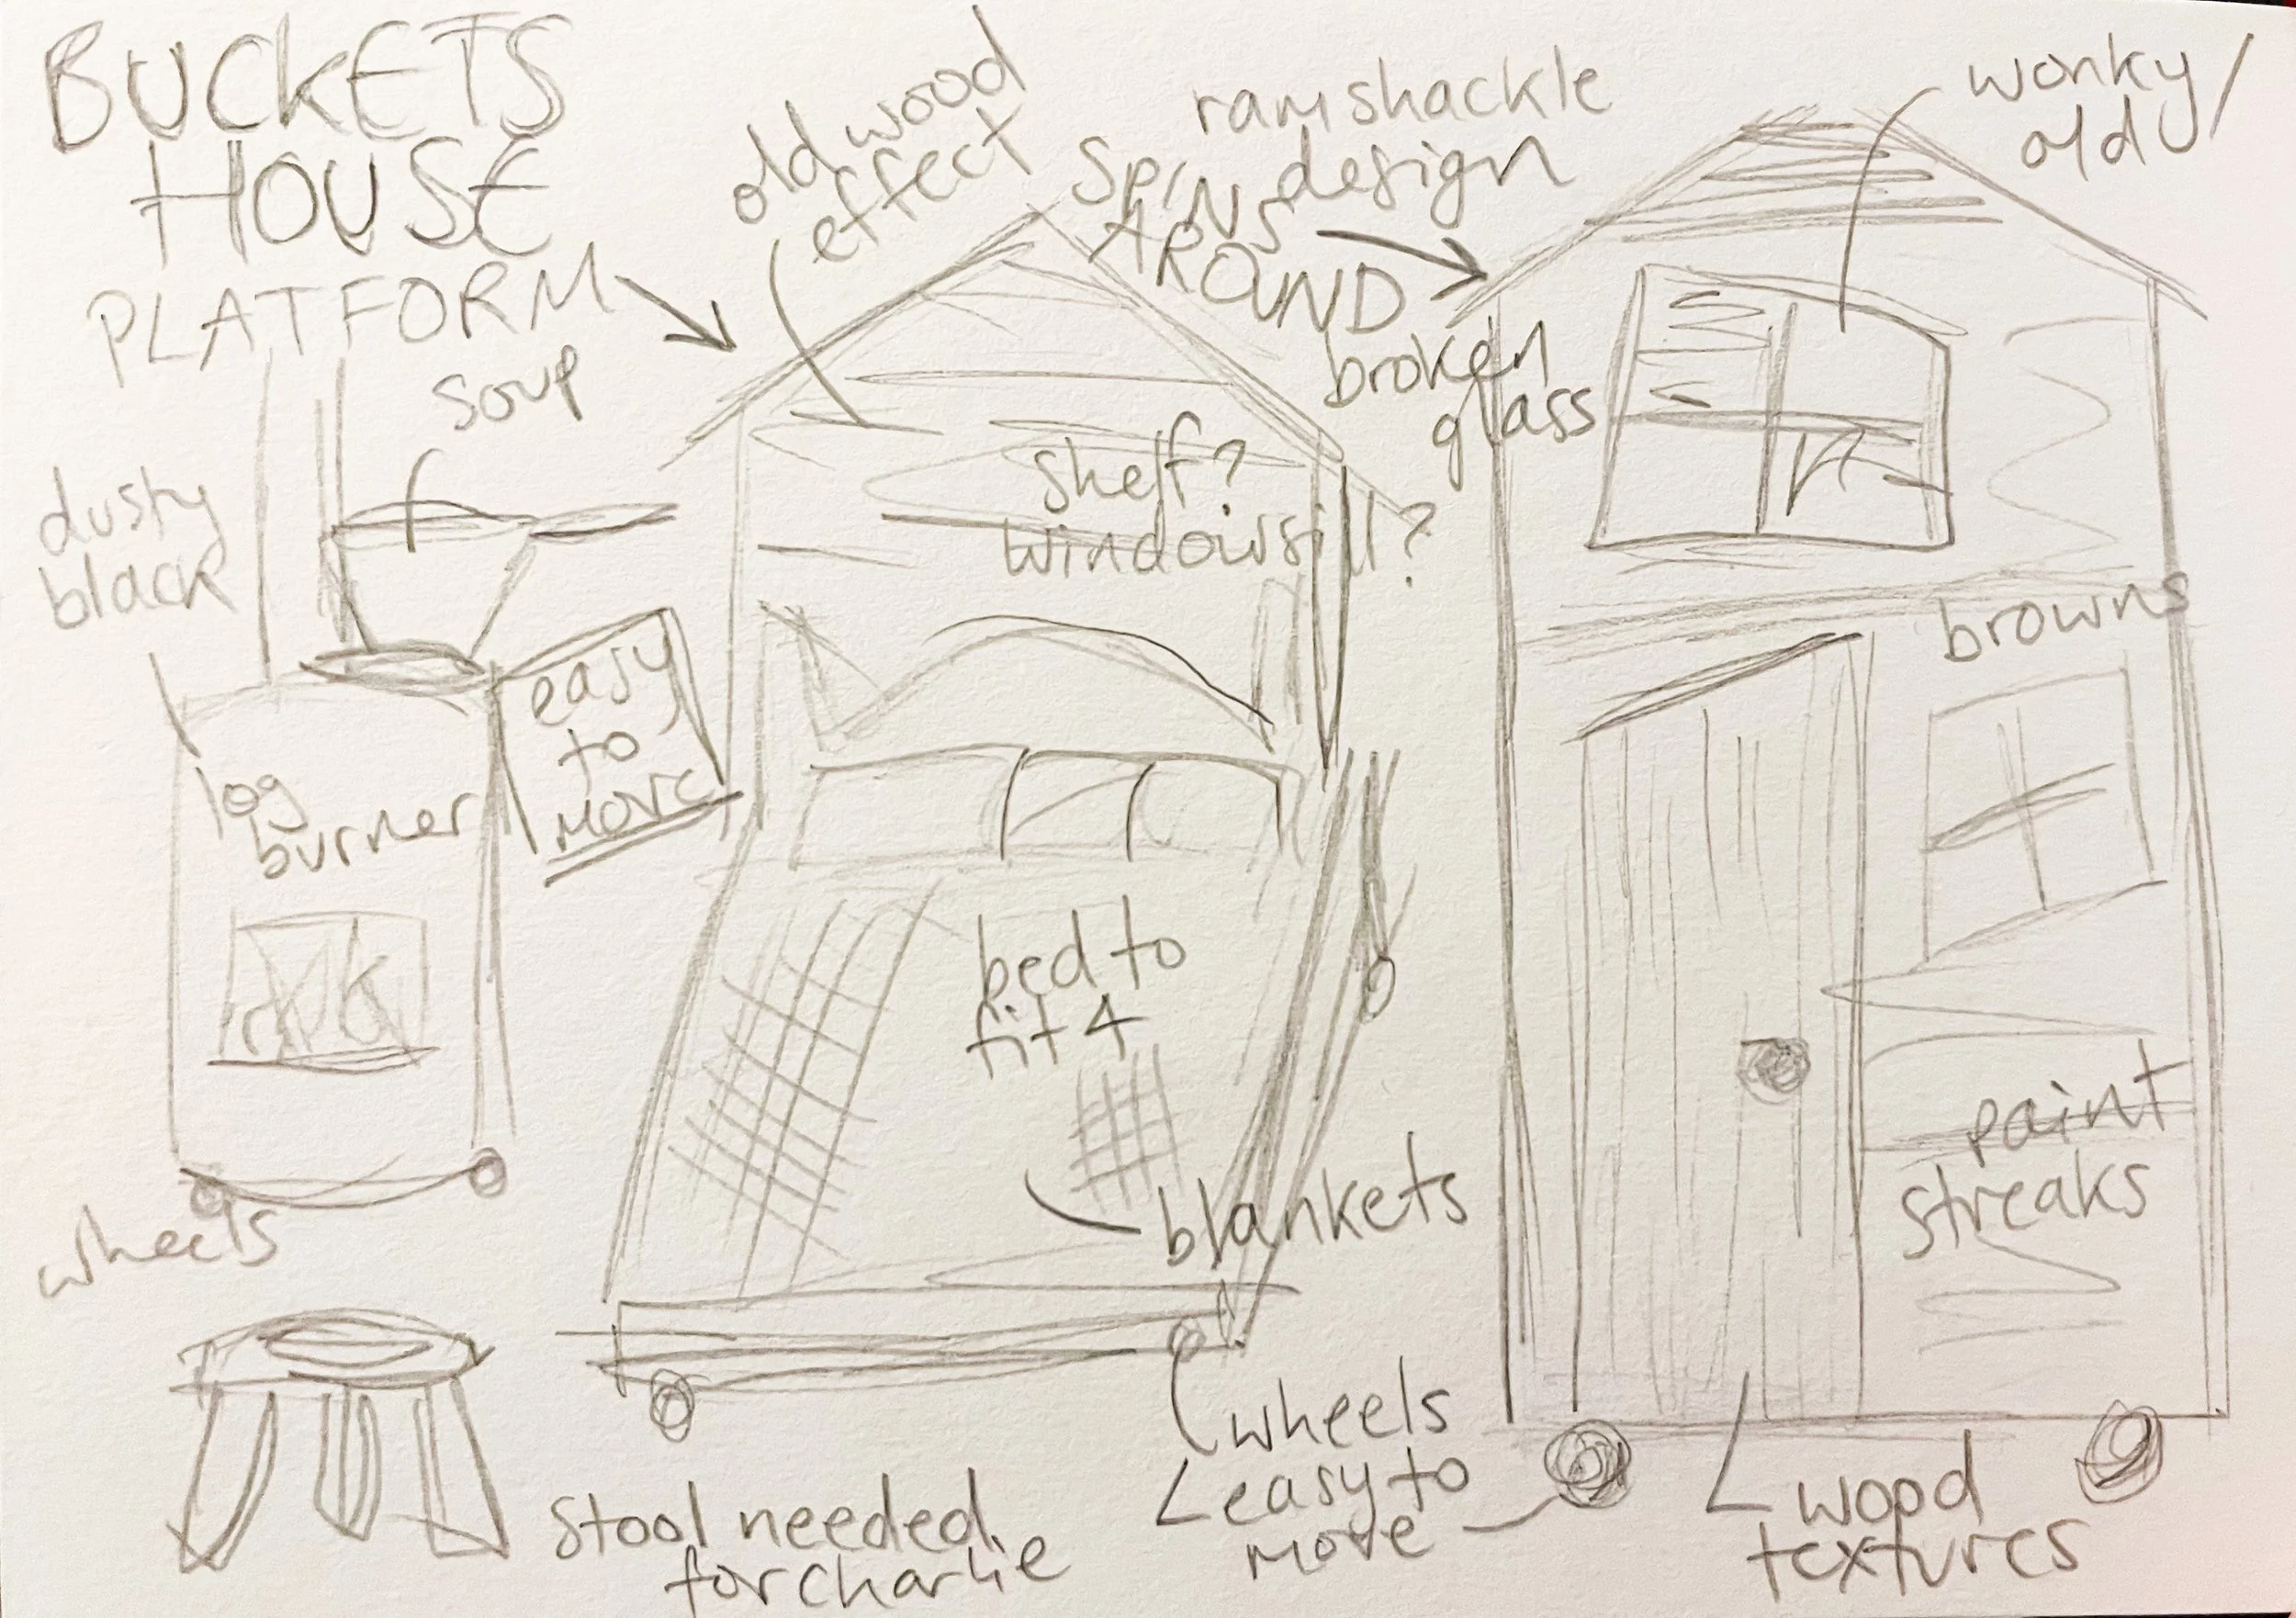 BUCKETS
HOUSE
PLATFORM
old wood
effect
ramshackle
design
SPINS
AROUND
wonky/
old
soup
dusty
black
broken
glass
shelf?
windowsill?
easy
to
move
log
burner
browns
bed to
fit 4
paint
streaks
blankets
wheels
wheels
easy to
move
wood
textures
stool needed
for charlie